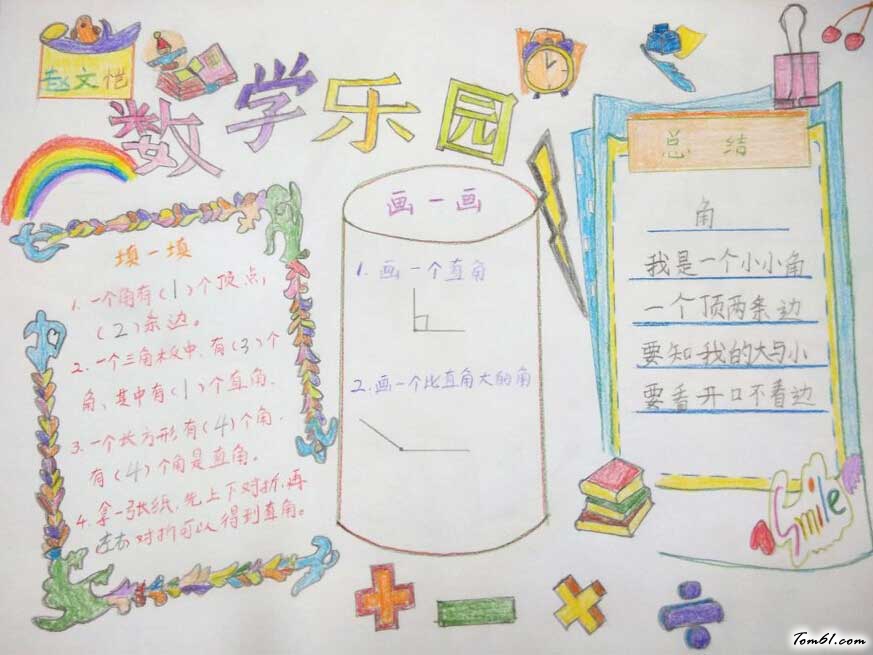 赵文恺
数学乐园
填一填
1. 一个角有(1)个顶点,
(2)条边。
2. 一个三角板中,有(3)个
角,其中有(1)个直角.
3. 一个长方形有(4)个角.
有(4)个角是直角。
4. 拿一张纸,先上下对折,再
左右对折可以得到直角。
画一画
1. 画一个直角
2. 画一个比直角大的角
总结
角
我是一个小小角
一个顶两条边
要知我的大与小
要看开口不看边
Smile
Tom61.com